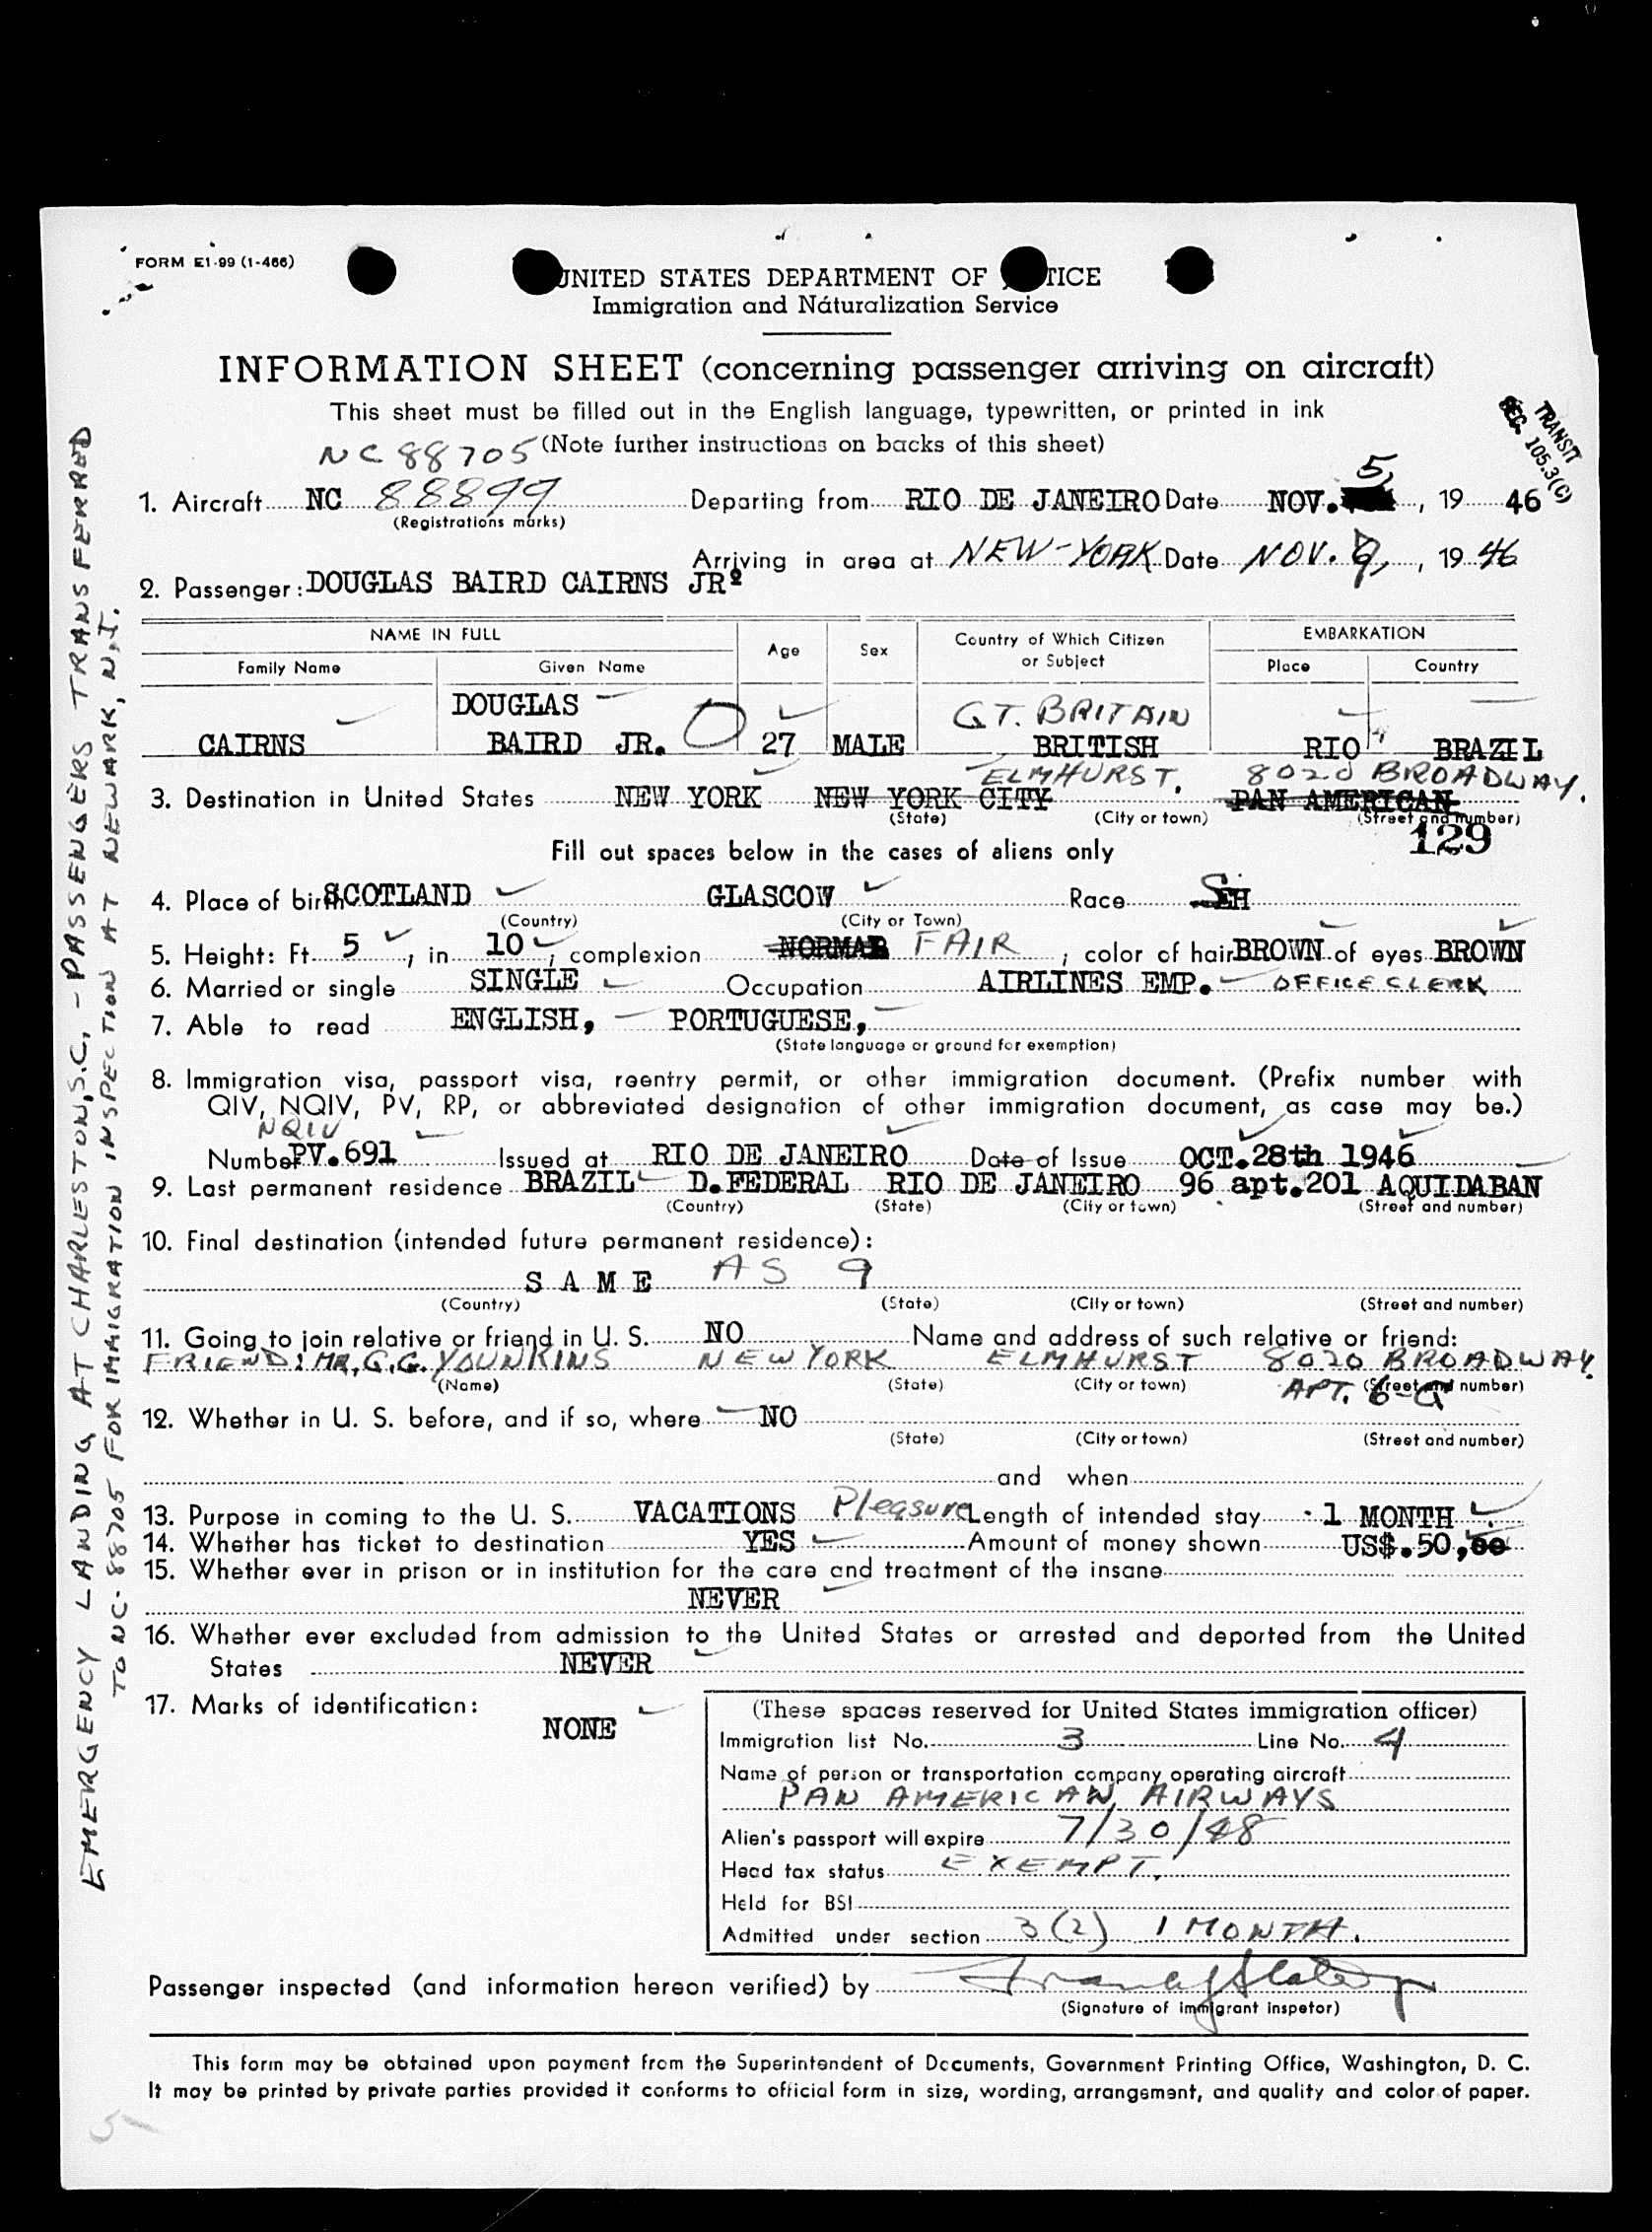 FORM E1-99 (1-466)
UNITED STATES DEPARTMENT OF TICE
Immigration and Naturalization Service
INFORMATION SHEET (concerning passenger arriving on aircraft)
This sheet must be filled out in the English language, typewritten, or printed in ink
NC 88705 (Note further instructions on backs of this sheet)
TRANSIT
REG. 105.3(C)
1. Aircraft NC 88899 Departing from RIO DE JANEIRO Date NOV. 5, , 19 46
(Registrations marks)
Arriving in area at NEW-YORK Date NOV. , 19 46
2. Passenger: DOUGLAS BAIRD CAIRNS JRº
NAME IN FULL Age Sex Country of Which Citizen or Subject EMBARKATION
Family Name Given Name Place Country
DOUGLAS GT. BRITAIN
CAIRNS BAIRD JR. 27 MALE BRITISH RIO BRAZIL
ELMHURST. 8020 BROADWAY.
3. Destination in United States NEW YORK NEW YORK CITY PAN AMERICAN
(State) (City or town) (Street and number)
129
Fill out spaces below in the cases of aliens only
4. Place of birth SCOTLAND GLASCOW Race
(Country) (City or Town)
5. Height: Ft. 5 , in. 10 , complexion NORMAL FAIR ; color of hair BROWN of eyes BROWN
6. Married or single SINGLE Occupation AIRLINES EMP. OFFICE CLERK
7. Able to read ENGLISH, PORTUGUESE,
(State language or ground for exemption)
8. Immigration visa, passport visa, reentry permit, or other immigration document. (Prefix number with
QIV, NQIV, PV, RP, or abbreviated designation of other immigration document, as case may be.)
NQIV
Number PV.691 Issued at RIO DE JANEIRO Date of Issue OCT.28th 1946
9. Last permanent residence BRAZIL D.FEDERAL RIO DE JANEIRO 96 apt.201 AQUIDABAN
(Country) (State) (City or town) (Street and number)
10. Final destination (intended future permanent residence):
S A M E AS 9
(Country) (State) (City or town) (Street and number)
11. Going to join relative or friend in U. S. NO Name and address of such relative or friend:
FRIEND: MR. G.G. YOUNKINS NEW YORK ELMHURST 8020 BROADWAY.
(Name) (State) (City or town) (Street and number)
APT. 6-G
12. Whether in U. S. before, and if so, where NO
(State) (City or town) (Street and number)
and when
13. Purpose in coming to the U. S. VACATIONS Pleasure Length of intended stay 1 MONTH
14. Whether has ticket to destination YES Amount of money shown US$.50,00
15. Whether ever in prison or in institution for the care and treatment of the insane
NEVER
16. Whether ever excluded from admission to the United States or arrested and deported from the United
States NEVER
17. Marks of identification:
NONE
(These spaces reserved for United States immigration officer)
Immigration list No. 3 Line No. 4
Name of person or transportation company operating aircraft
PAN AMERICAN AIRWAYS
Alien's passport will expire 7/30/48
Head tax status EXEMPT.
Held for BSI
Admitted under section 3(2) 1 MONTH.
Passenger inspected (and information hereon verified) by
(Signature of immigrant inspetor)
This form may be obtained upon payment from the Superintendent of Documents, Government Printing Office, Washington, D. C.
It may be printed by private parties provided it conforms to official form in size, wording, arrangement, and quality and color of paper.
5
EMERGENCY LANDING AT CHARLESTON, S.C. - PASSENGERS TRANSFERRED
TO NC-88705 FOR IMMIGRATION INSPECTION AT NEWARK, N.J.